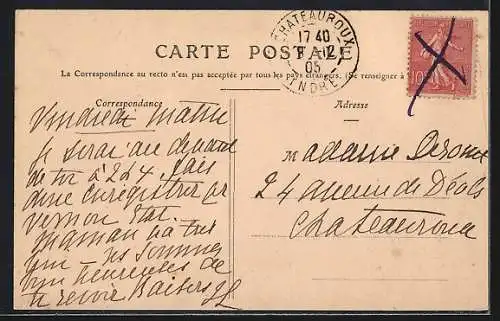 CARTE POSTALE
La Correspondance au recto n'est pas acceptée par tous les pays étrangers. (Se renseigner à
CHATEAUROUX
17 40
05
INDRE
10
Correspondance
Adresse
Vendredi matin
Je serai au devant
de toi à 2 h 4. fais
donc enregistrer pr
Vernon Etat.
Maman va très
bien
heureuses de
te revoir Baisers
Madame
24 avenue de Déols
Chateauroux